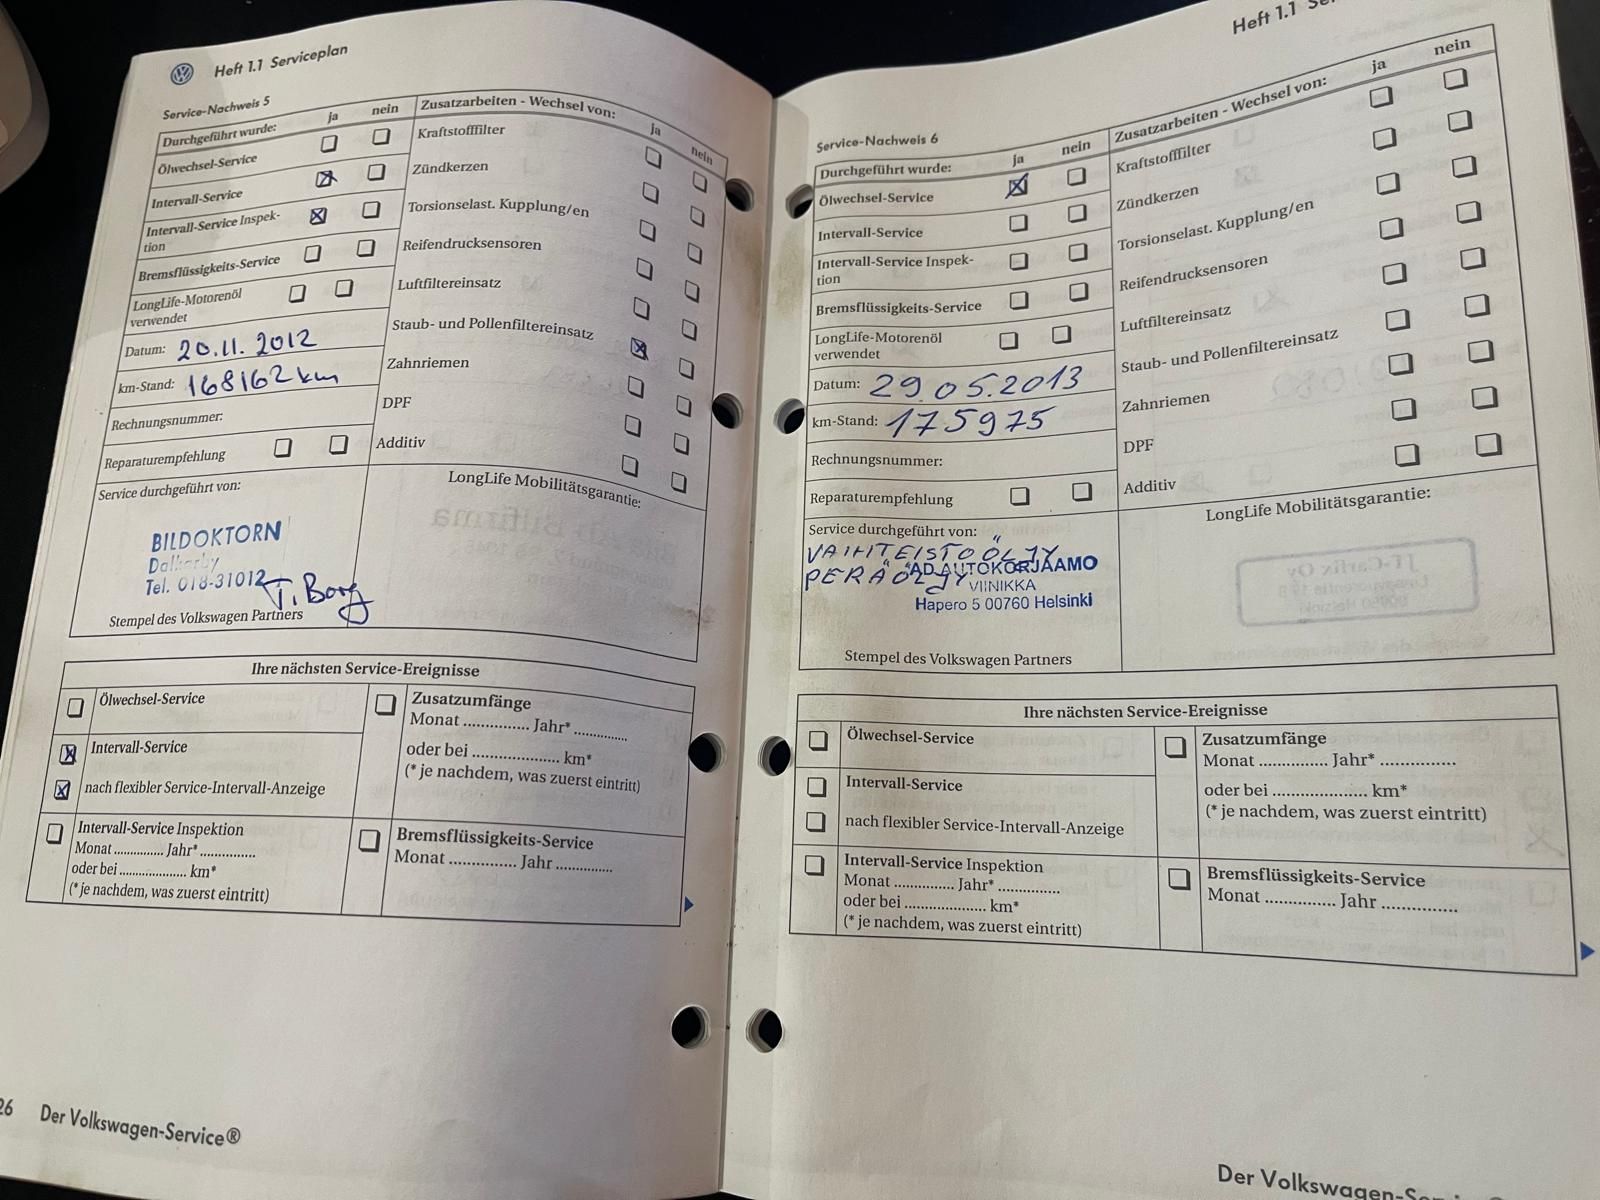 Heft 1.1 Serviceplan
Service-Nachweis 5
Durchgeführt wurde: ja nein
Ölwechsel-Service
Intervall-Service
Intervall-Service Inspek-
tion
Bremsflüssigkeits-Service
LongLife-Motorenöl
verwendet
Datum: 20.11.2012
km-Stand: 168162 km
Rechnungsnummer:
Reparaturempfehlung
Zusatzarbeiten - Wechsel von: ja nein
Kraftstofffilter
Zündkerzen
Torsionselast. Kupplung/en
Reifendrucksensoren
Luftfiltereinsatz
Staub- und Pollenfiltereinsatz
Zahnriemen
DPF
Additiv
Service durchgeführt von:
BILDOKTORN
Dalkarby
Tel. 018-31012
T. Borg
Stempel des Volkswagen Partners
LongLife Mobilitätsgarantie:
Ihre nächsten Service-Ereignisse
Ölwechsel-Service
Intervall-Service
nach flexibler Service-Intervall-Anzeige
Intervall-Service Inspektion
Monat .............. Jahr* ..............
oder bei .................... km*
(* je nachdem, was zuerst eintritt)
Zusatzumfänge
Monat .............. Jahr* ..............
oder bei .................... km*
(* je nachdem, was zuerst eintritt)
Bremsflüssigkeits-Service
Monat .............. Jahr ..............
26 Der Volkswagen-Service®
Heft 1.1
Service-Nachweis 6
Durchgeführt wurde: ja nein
Ölwechsel-Service
Intervall-Service
Intervall-Service Inspek-
tion
Bremsflüssigkeits-Service
LongLife-Motorenöl
verwendet
Datum: 29.05.2013
km-Stand: 175975
Rechnungsnummer:
Reparaturempfehlung
Zusatzarbeiten - Wechsel von: ja nein
Kraftstofffilter
Zündkerzen
Torsionselast. Kupplung/en
Reifendrucksensoren
Luftfiltereinsatz
Staub- und Pollenfiltereinsatz
Zahnriemen
DPF
Additiv
Service durchgeführt von:
VAIHTEISTOÖLJY
PERÄÖLJY
AD AUTOKORJAAMO
VIINIKKA
Hapero 5 00760 Helsinki
Stempel des Volkswagen Partners
LongLife Mobilitätsgarantie:
Ihre nächsten Service-Ereignisse
Ölwechsel-Service
Intervall-Service
nach flexibler Service-Intervall-Anzeige
Intervall-Service Inspektion
Monat .............. Jahr* ..............
oder bei .................... km*
(* je nachdem, was zuerst eintritt)
Zusatzumfänge
Monat .............. Jahr* ..............
oder bei .................... km*
(* je nachdem, was zuerst eintritt)
Bremsflüssigkeits-Service
Monat .............. Jahr ..............
Der Volkswagen-